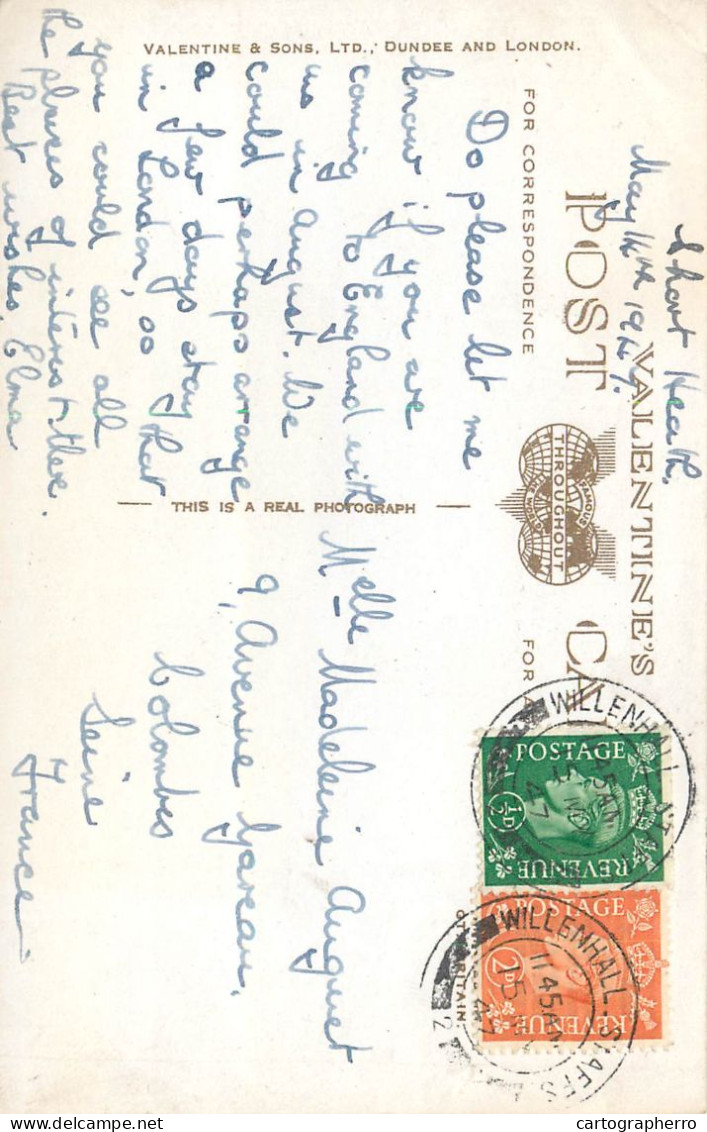 VALENTINE & SONS, LTD., DUNDEE AND LONDON.
VALENTINE'S
POST CA
FAMOUS
THROUGHOUT
THE WORLD
FOR CORRESPONDENCE
FOR A
THIS IS A REAL PHOTOGRAPH
Short Heath.
May 14th 1947.
Do please let me
know if you are
coming to England with
us in August. We
could perhaps arrange
a few days stay
in London, so that
you could see all
the places of interest there.
Best wishes, Elma
Melle Madeleine Auguet
9, Avenue Gareau,
Colombes
Seine
France
POSTAGE
½D
REVENUE
POSTAGE
2D
REVENUE
WILLENHALL
45AM
47
WILLENHALL STAFFS.
1145AM
15
47
2
BRITAIN
cartographerro